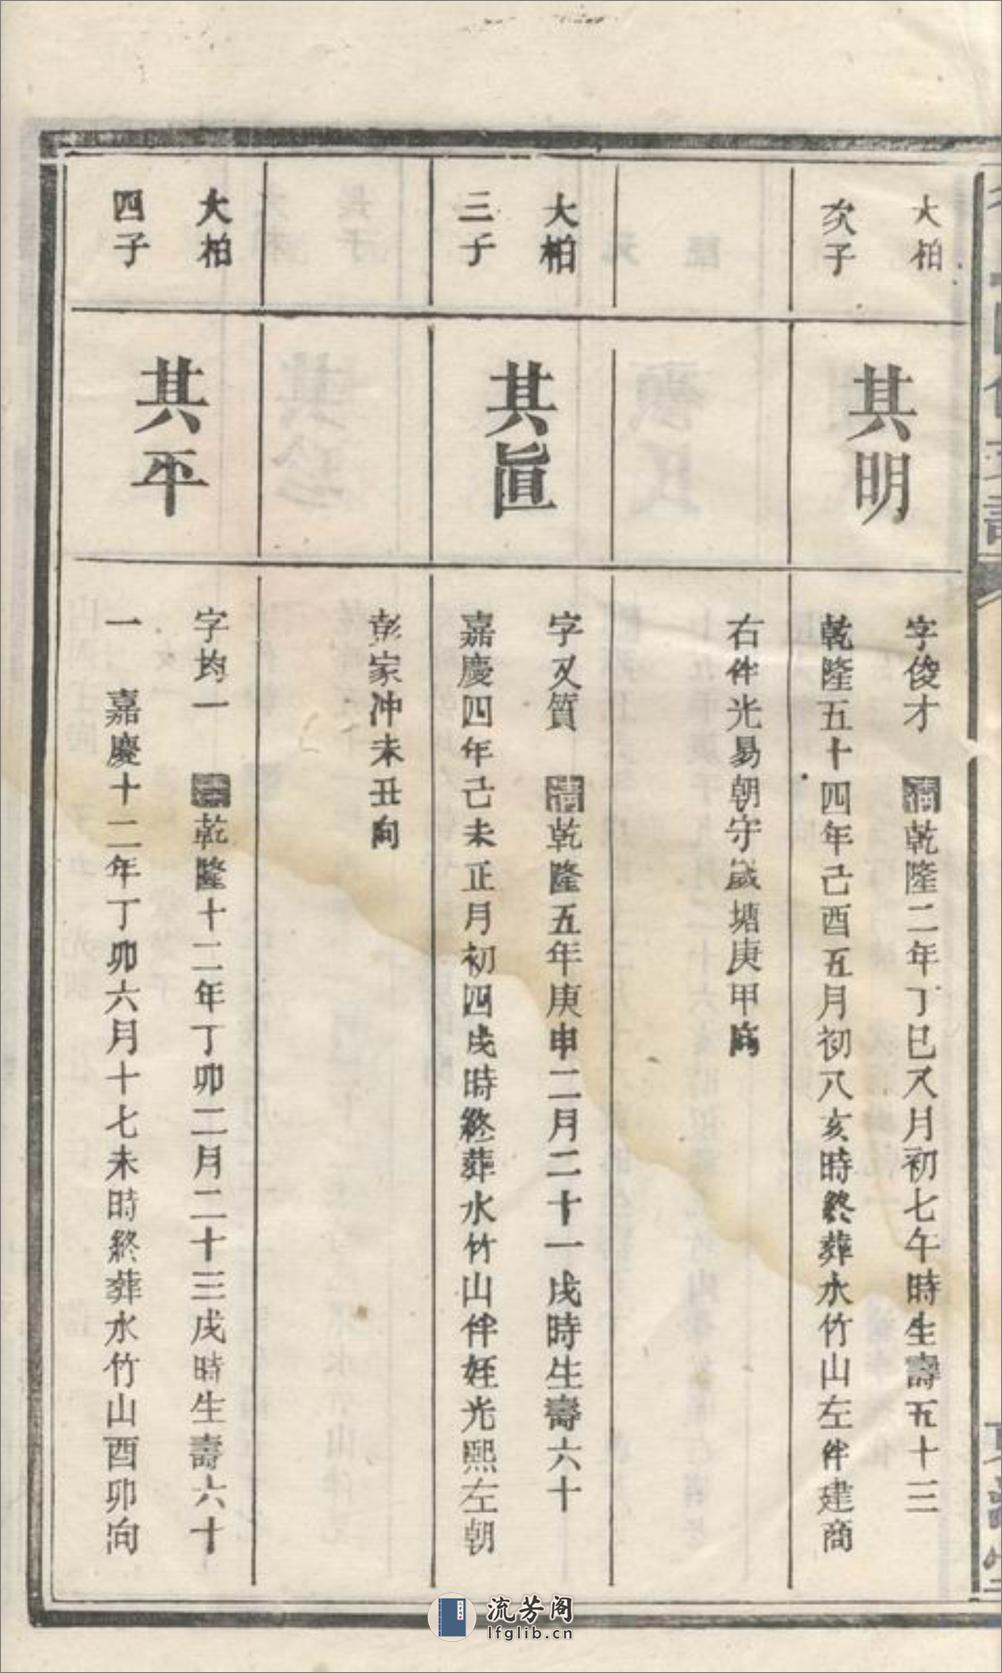 大柏
次子
其明
字俊才 清乾隆二年丁巳又月初七午時生壽五十三
乾隆五十四年己酉五月初八亥時終葬水竹山左伴建商
右伴光易朝守歲塘庚甲向
大柏
三子
其眞
字又質 清乾隆五年庚申二月二十一戌時生壽六十
嘉慶四年己未正月初四戌時終葬水竹山伴姪光熙左朝
彭家冲未丑向
大柏
四子
其平
字均一 清乾隆十二年丁卯二月二十三戌時生壽六十
一 嘉慶十二年丁卯六月十七未時終葬水竹山酉卯向
流芳阁
lfglib.cn